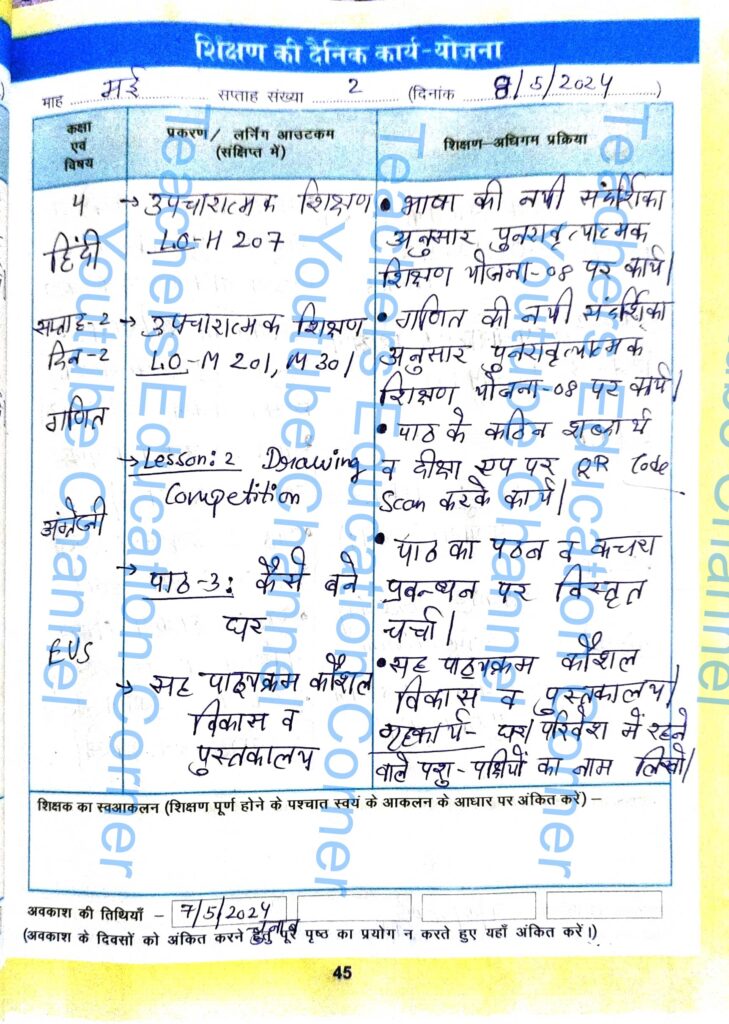 शिक्षण की दैनिक कार्य-योजना
माह मई सप्ताह संख्या 2 (दिनांक 8/5/2024)
कक्षा एवं विषय
प्रकरण/ लर्निंग आउटकम (संक्षिप्त में)
शिक्षण-अधिगम प्रक्रिया
4
हिंदी
सप्ताह-2
दिन-2
गणित
अंग्रेजी
EVS
→ उपचारात्मक शिक्षण
LO-H 207
→ उपचारात्मक शिक्षण
LO-M 201, M 301
→ Lesson: 2 Drawing
Competition
→ पाठ-3: कैसे बने
घर
→ सह पाठ्यक्रम कौशल
विकास व
पुस्तकालय
• भाषा की नयी संदर्शिका
अनुसार पुनरावृत्यात्मक
शिक्षण योजना-08 पर कार्य।
• गणित की नयी संदर्शिका
अनुसार पुनरावृत्यात्मक
शिक्षण योजना-08 पर कार्य।
• पाठ के कठिन शब्दार्थ
व दीक्षा एप पर QR Code
Scan करके कार्य।
• पाठ का पठन व कचरा
प्रबन्धन पर विस्तृत
चर्चा।
• सह पाठ्यक्रम कौशल
विकास व पुस्तकालय।
गृहकार्य- घर/परिवेश में रहने
वाले पशु-पक्षियों का नाम लिखो।
शिक्षक का स्वआकलन (शिक्षण पूर्ण होने के पश्चात स्वयं के आकलन के आधार पर अंकित करें) –
अवकाश की तिथियाँ – 7/5/2024
चुनाव
(अवकाश के दिवसों को अंकित करने हेतु पूरे पृष्ठ का प्रयोग न करते हुए यहाँ अंकित करें।)
45
Teachers Education Corner
Youtube Channel
Teachers Education Corner
Youtube Channel
Teachers Education Corner
Youtube Channel
Channel